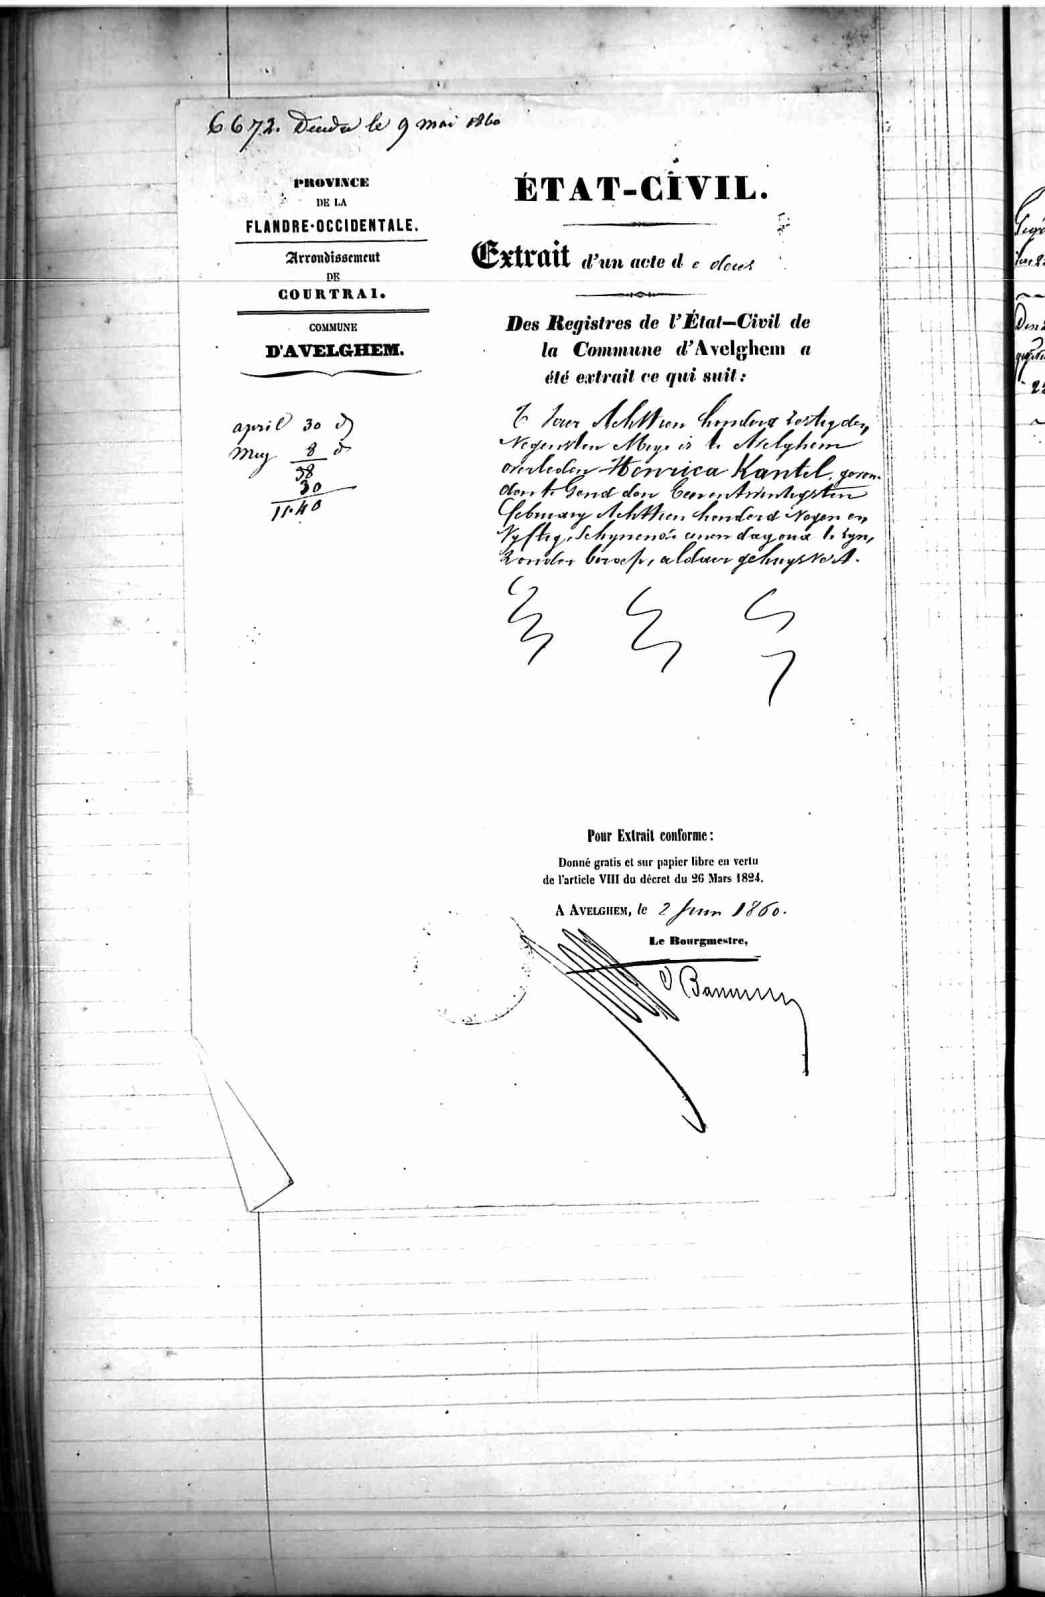 6672. le 9 mai 1860
PROVINCE
DE LA
FLANDRE-OCCIDENTALE.
Arrondissement
DE
COURTRAI.
COMMUNE
D'AVELGHEM.
april 30 d
Mey 8 d
38
30
11.40
ÉTAT-CIVIL.
Extrait d'un acte de
Des Registres de l'État-Civil de
la Commune d'Avelghem a
été extrait ce qui suit:
Jaer Achttien honderd zestig den
Negensten Meye is te Avelghem
overleden Henrica Kantel, geren-
den te Gend den
february Achttien honderd Negen en
Vyftig, Schynende eenen dag oud te zyn,
Zonder beroep, aldaer gehuysvest.
Pour Extrait conforme:
Donné gratis et sur papier libre en vertu
de l'article VIII du décret du 26 Mars 1824.
A AVELGHEM, le 2 Juin 1860.
Le Bourgmestre,